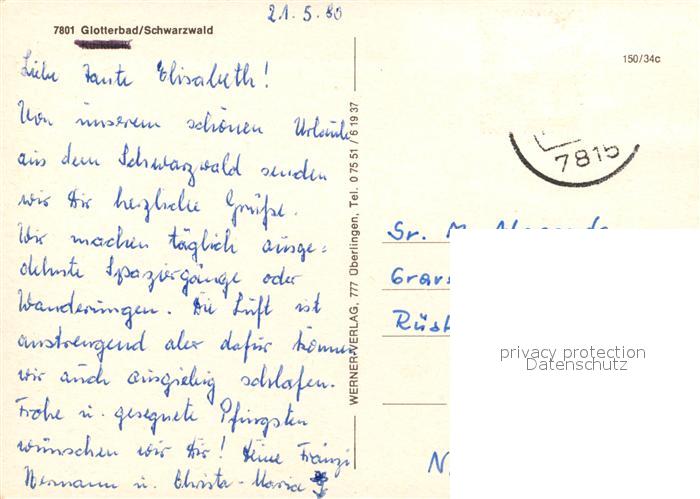 21.5.80
7801 Glotterbad/Schwarzwald
Liebe Tante Elisabeth!
Von unserem schönen Urlaub
aus dem Schwarzwald senden
wir Dir herzliche Grüße.
Wir machen täglich ausge=
dehnte Spaziergänge oder
Wanderungen. Die Luft ist
anstrengend aber dafür können
wir auch ausgiebig schlafen.
Frohe u. gesegnete Pfingsten
wünschen wir Dir! Deine Fränzi
Hermann u. Christa-Maria
WERNER-VERLAG, 777 Überlingen, Tel. 0 75 51 / 6 19 37
150/34c
7815
Sr. M.
privacy protection
Datenschutz